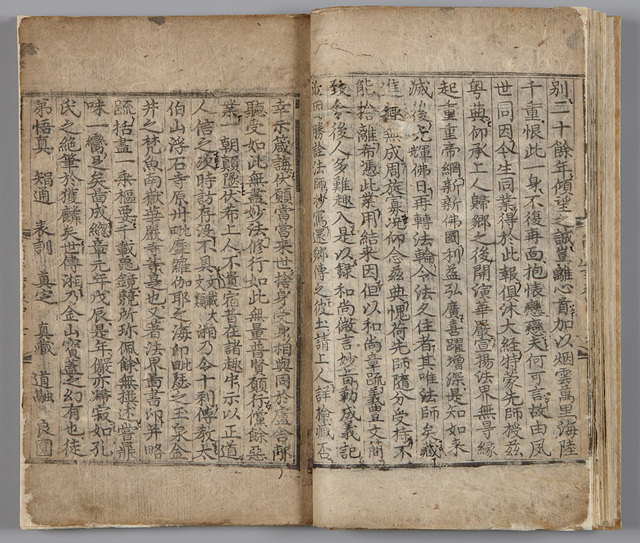 別二十餘年傾望之誠豈離心首加以烟雲萬里海陸
千重恨此一身不復再面抱懷戀戀夫何可言故由夙
世同因今生同業得於此報俱沐大經特蒙先師授兹
粤典仰承上人歸鄉之後開演華嚴宣揚法界無导緣
起重重帝網新新佛國利益弘廣喜躍增深是知如来
滅後光輝佛日再轉法輪令法久住者其唯法師矣藏
進趣無成周旋寡況仰念兹典愧荷先師隨分受持不
能捨離希憑此業用結来因但以和尚章疏義豊文簡
致令後人多難趣入是以録和尚微言妙旨勒成義記
近因勝詮法師抄寫還鄉傳之彼土請上人詳檢臧否
幸示箴誨伏願當當来世捨身受身相與同於盧舍那
聽受如此無盡妙法修行如此無量普賢願行儻餘惡
業一朝顚墜伏希上人不遺宿昔在諸趣中示以正道
人信之次時訪存没不具文載大文類湘乃令十刹傳教太
伯山浮石寺原州毗摩羅伽耶之海印毗瑟之玉泉金
井之梵魚南嶽華嚴寺等是也又著法界啚書印并略
疏括盡一乘樞要千載龜鏡競所珎佩餘無撰述嘗鼎
味一臠足矣啚成總章元年戊辰是年儼亦歸寂如孔
氏之絶筆於獲麟矣世傳湘乃金山寶盖之幻有也徒
弟悟真 智通 表訓 真定 真藏 道融 良圓